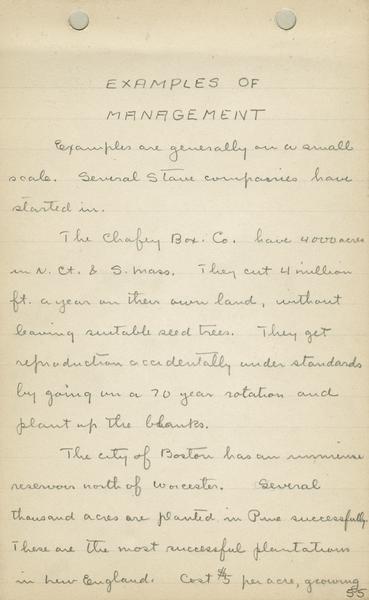 EXAMPLES OF
MANAGEMENT
Examples are generally on a small
scale. Several Stave companies have
started in.
The Chafey Box. Co. have 4000 acres
in N. Ct. & S. Mass. They cut 4 million
ft. a year on their own land, without
leaving suitable seed trees. They get
reproduction accidentally under standards
by going on a 70 year rotation and
plant up the blanks.
The city of Boston has an immense
reservoir north of Worcester. Several
thousand acres are planted in Pine successfully.
These are the most successful plantations
in New England. Cost $5 per acre, growing
55